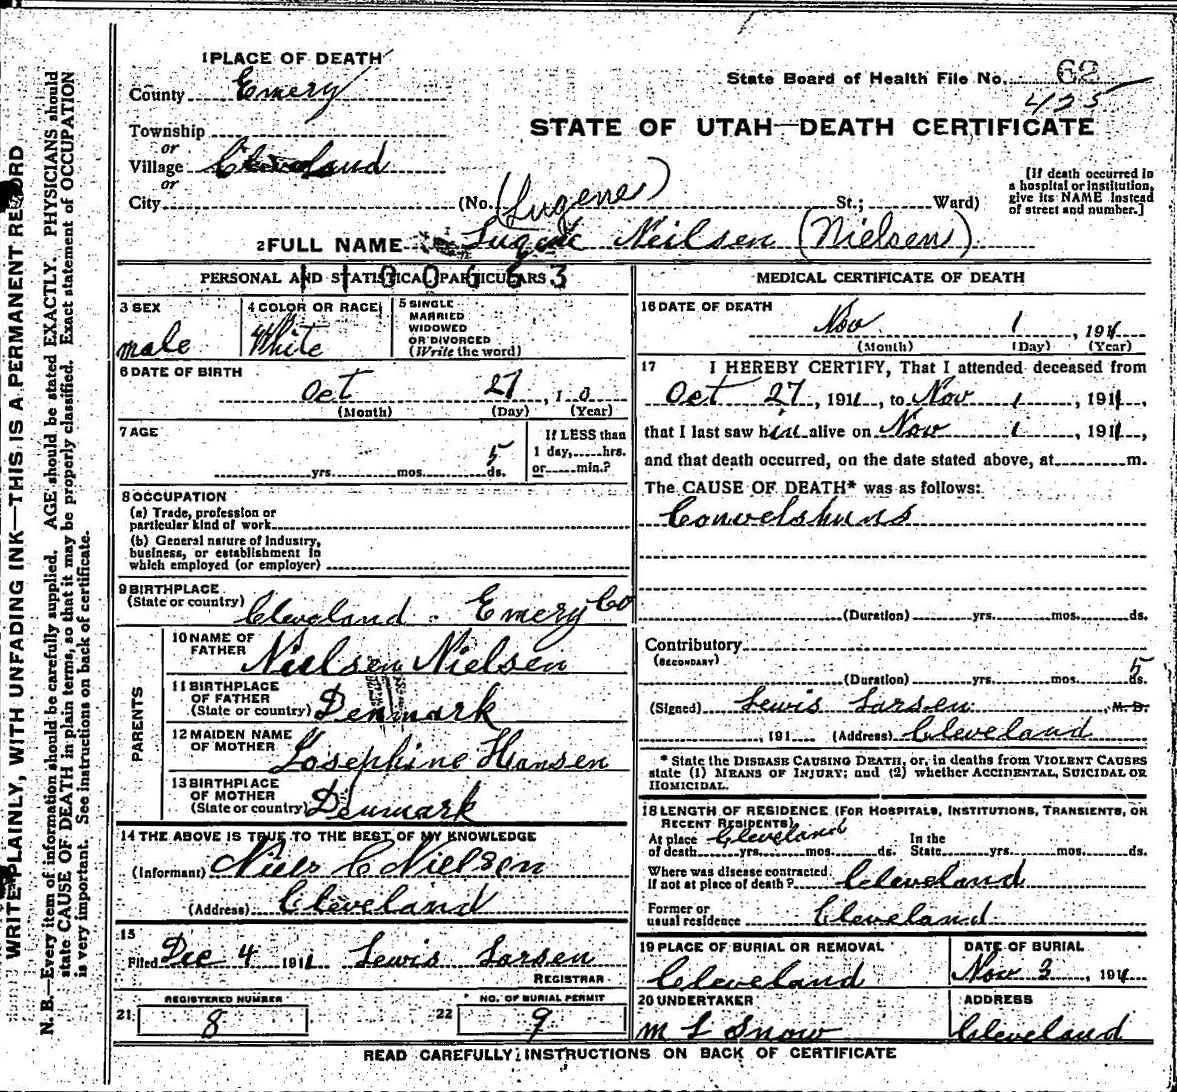 1 PLACE OF DEATH
County Emery
State Board of Health File No. 62
425
Township
or
Village Cleveland
or
City
STATE OF UTAH—DEATH CERTIFICATE
(No. St.; Ward)
[If death occurred in a hospital or institution, give its NAME instead of street and number.]
(Eugene)
2 FULL NAME Eugene Neilsen (Nielsen)
PERSONAL AND STATISTICAL PARTICULARS
1100663
3 SEX
male
4 COLOR OR RACE
White
5 SINGLE
MARRIED
WIDOWED
OR DIVORCED
(Write the word)
6 DATE OF BIRTH
Oct 27, 1
(Month) (Day) (Year)
7 AGE
yrs. mos. 5 ds.
If LESS than
1 day, hrs.
or min.?
8 OCCUPATION
(a) Trade, profession or
particular kind of work
(b) General nature of industry,
business, or establishment in
which employed (or employer)
9 BIRTHPLACE
(State or country) Cleveland - Emery Co
PARENTS
10 NAME OF
FATHER Nielsen Nielsen
11 BIRTHPLACE
OF FATHER
(State or country) Denmark
12 MAIDEN NAME
OF MOTHER Josephine Hansen
13 BIRTHPLACE
OF MOTHER
(State or country) Denmark
14 THE ABOVE IS TRUE TO THE BEST OF MY KNOWLEDGE
(Informant) Niels C Nielsen
(Address) Cleveland
15
Filed Dec 4 1911 Lewis Larsen
REGISTRAR
REGISTERED NUMBER
21 8
NO. OF BURIAL PERMIT
22 9
MEDICAL CERTIFICATE OF DEATH
16 DATE OF DEATH
Nov 1, 1911
(Month) (Day) (Year)
17 I HEREBY CERTIFY, That I attended deceased from
Oct 27, 1911, to Nov 1, 1911,
that I last saw him alive on Nov 1, 1911,
and that death occurred, on the date stated above, at m.
The CAUSE OF DEATH* was as follows:
Convelshuns
(Duration) yrs. mos. ds.
Contributory
(SECONDARY)
(Duration) yrs. mos. 5 ds.
(Signed) Lewis Larsen, M. D.
, 191 (Address) Cleveland
* State the DISEASE CAUSING DEATH, or, in deaths from VIOLENT CAUSES
state (1) MEANS OF INJURY; and (2) whether ACCIDENTAL, SUICIDAL OR
HOMICIDAL.
18 LENGTH OF RESIDENCE (FOR HOSPITALS, INSTITUTIONS, TRANSIENTS, OR
RECENT RESIDENTS)
At place Cleveland In the
of death yrs. mos. ds. State yrs. mos. ds.
Where was disease contracted,
if not at place of death? Cleveland
Former or
usual residence Cleveland
19 PLACE OF BURIAL OR REMOVAL
Cleveland
DATE OF BURIAL
Nov 3, 1911
20 UNDERTAKER
M L Snow
ADDRESS
Cleveland
READ CAREFULLY INSTRUCTIONS ON BACK OF CERTIFICATE
WRITE PLAINLY, WITH UNFADING INK—THIS IS A PERMANENT RECORD
N. B.—Every item of information should be carefully supplied. AGE should be stated EXACTLY. PHYSICIANS should
state CAUSE OF DEATH in plain terms, so that it may be properly classified. Exact statement of OCCUPATION
is very important. See instructions on back of certificate.